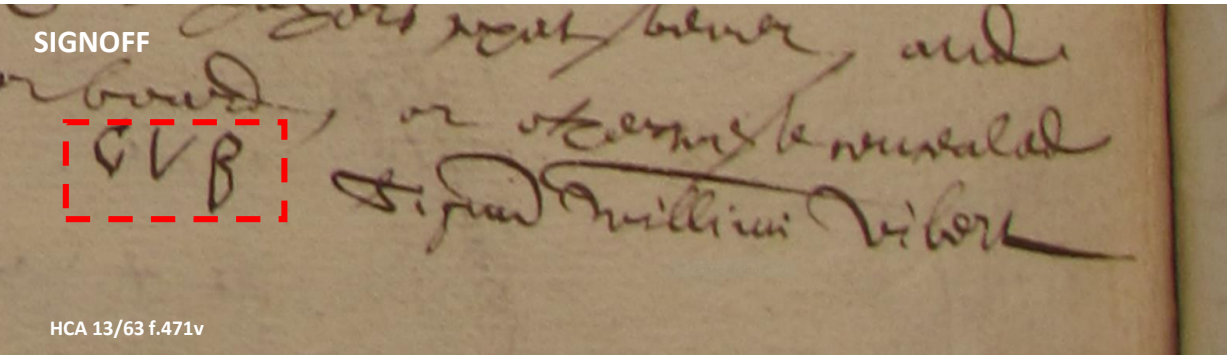 SIGNOFF
and
board, or otherwise concealed
C V B
Signum Willimi Vibert
HCA 13/63 f.471v